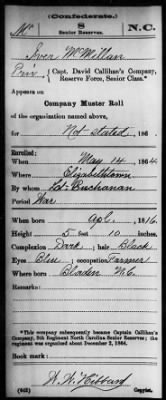 (Confederate.)
Mc 8 N.C.
Senior Reserves.
Iver McMillan
Priv., Capt. David Callihan's Company,
Reserve Force, Senior Class.*
Appears on
Company Muster Roll
of the organization named above,
for Not stated, 186
Enlisted:
When May 14, 1864
Where Elizabethtown
By whom Lt. Buchanan
Period War
When born Apl., 1816.
Height 5 feet 10 inches.
Complexion Dark; hair Black
Eyes Blue; occupation Farmer
Where born Bladen N.C.
Remarks:
*This company subsequently became Captain Callihan's
Company, 8th Regiment North Carolina Senior Reserves; the
regiment was organized about December 2, 1864.
Book mark:
Hibbard
(642) Copyist.